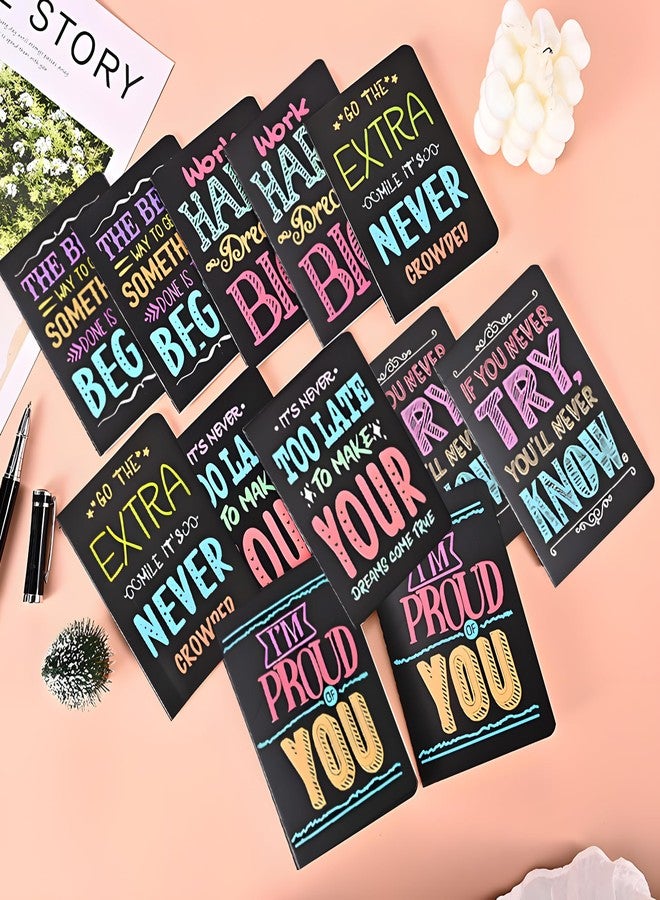 STORY
THE B
WAY TO G
SOMETH
DONE IS
BEG
THE BE
WAY TO GE
SOMETHI
DONE IS
BEG
Work
HA
Dre
BI
Work
HAR
Drea
BIG
GO THE
EXTRA
MILE IT'S
NEVER
CROWDED
YOU NEVER
RY
'LL NEVER
NOW
IF YOU NEVER
TRY,
YOU'LL NEVER
KNOW.
GO THE
EXTRA
MILE IT'S
NEVER
CROWDED
IT'S NEVER
OO LA
TO MAK
OU
•IT'S NEVER•
TOO LATE
TO MAKE
YOUR
DREAMS COME TRUE
I'M
PROUD
OF
YOU
I'M
PROUD
OF
YOU